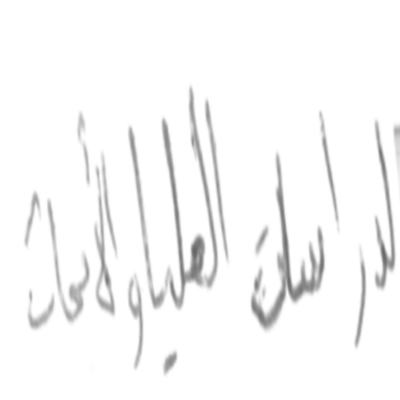 الدراسات العليا والأبحاث